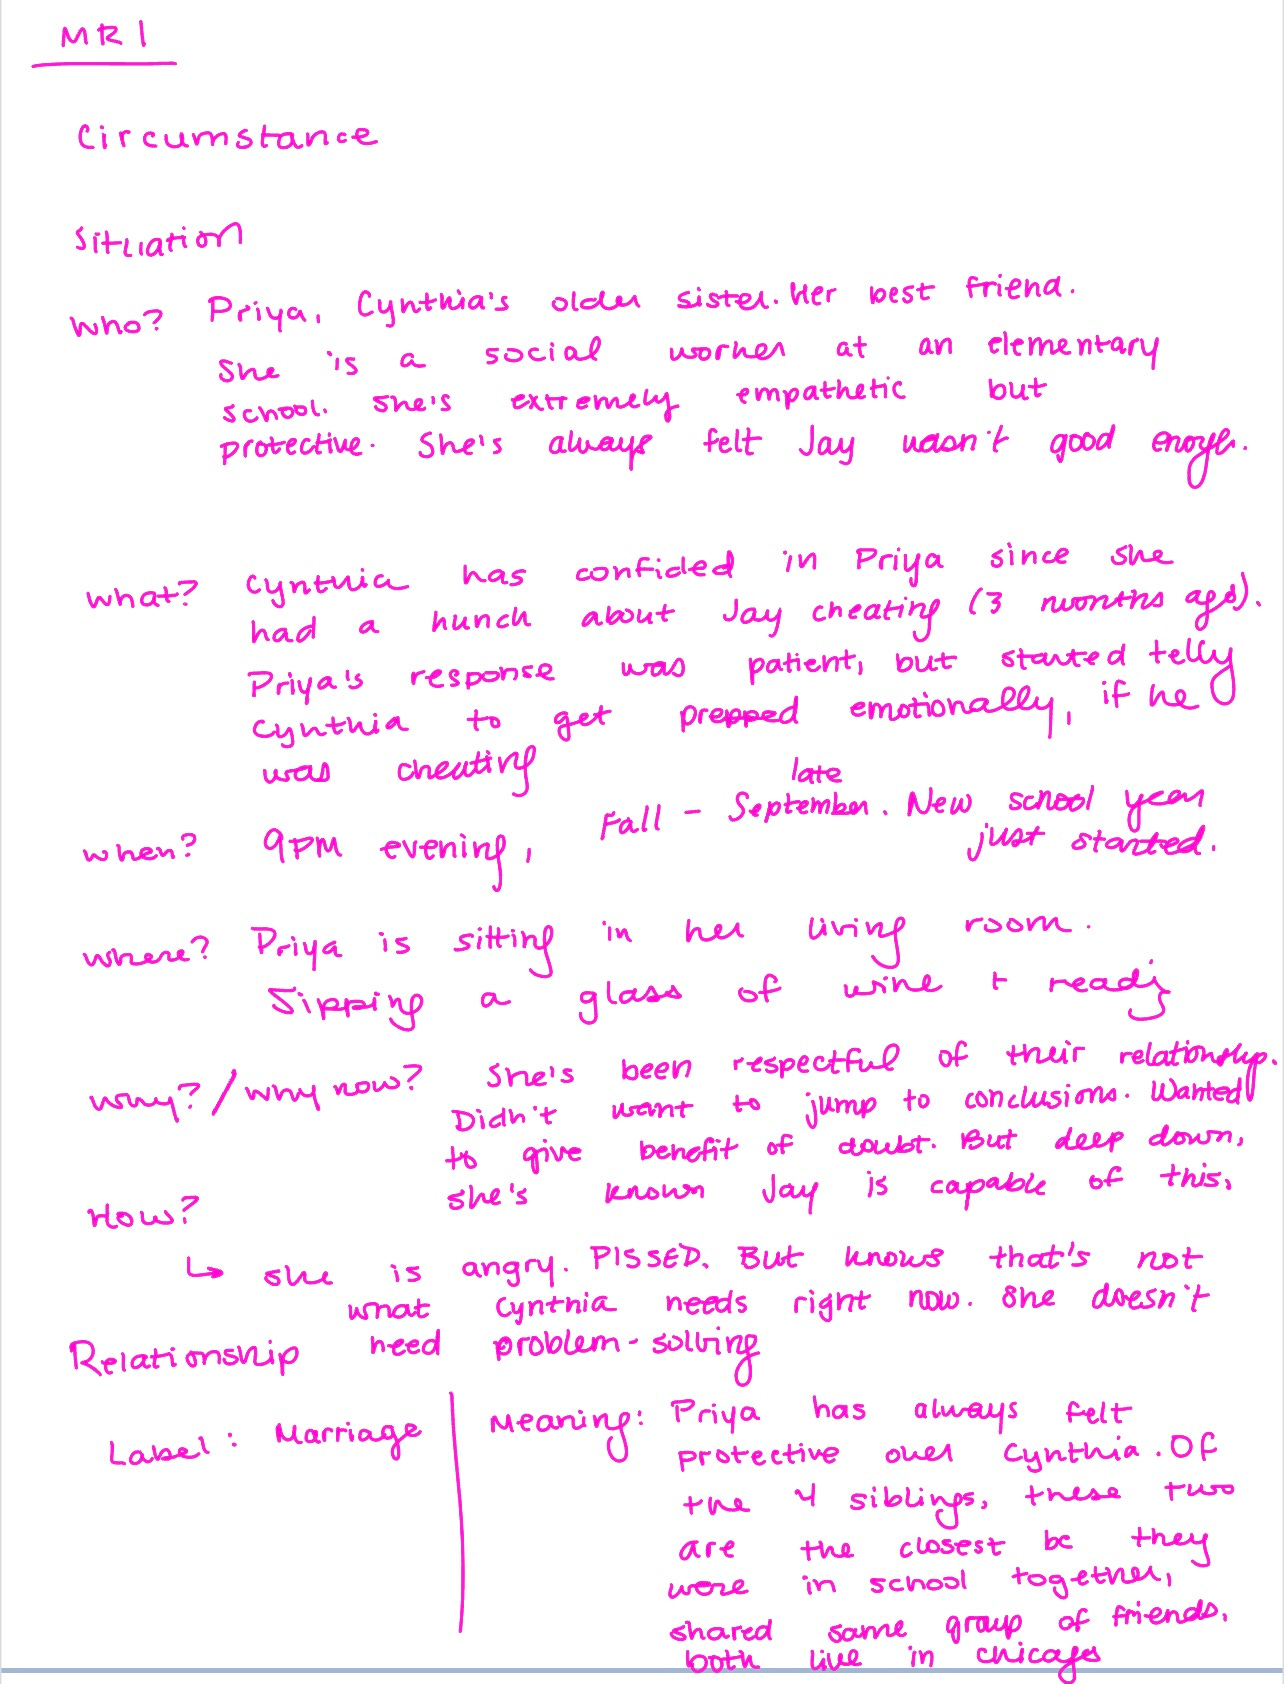 MR1
Circumstance
Situation
Who? Priya, Cynthia's older sister. Her best friend.
She is a social worker at an elementary
school. She's extremely empathetic but
protective. She's always felt Jay wasn't good enough.
What? Cynthia has confided in Priya since she
had a hunch about Jay cheating (3 months ago).
Priya's response was patient, but started telling
Cynthia to get prepped emotionally, if he
was cheating
late
When? 9PM evening, Fall - September. New school year
just started.
Where? Priya is sitting in her living room.
Sipping a glass of wine + reading
Why? / Why now? She's been respectful of their relationship.
Didn't want to jump to conclusions. Wanted
to give benefit of doubt. But deep down,
she's known Jay is capable of this.
How?
↳ she is angry. PISSED. But knows that's not
what Cynthia needs right now. She doesn't
need problem-solving
Relationship
Label: Marriage
Meaning: Priya has always felt
protective over Cynthia. Of
the 4 siblings, these two
are the closest bc they
were in school together,
shared same group of friends,
both live in chicago